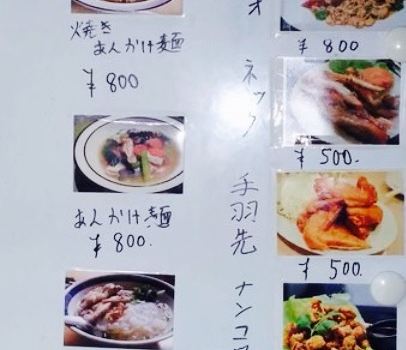 焼き
あんかけ麺
¥800
あんかけ麺
¥800.
オ
¥800
ネック
¥500.
手羽先
¥500.
ナンコ